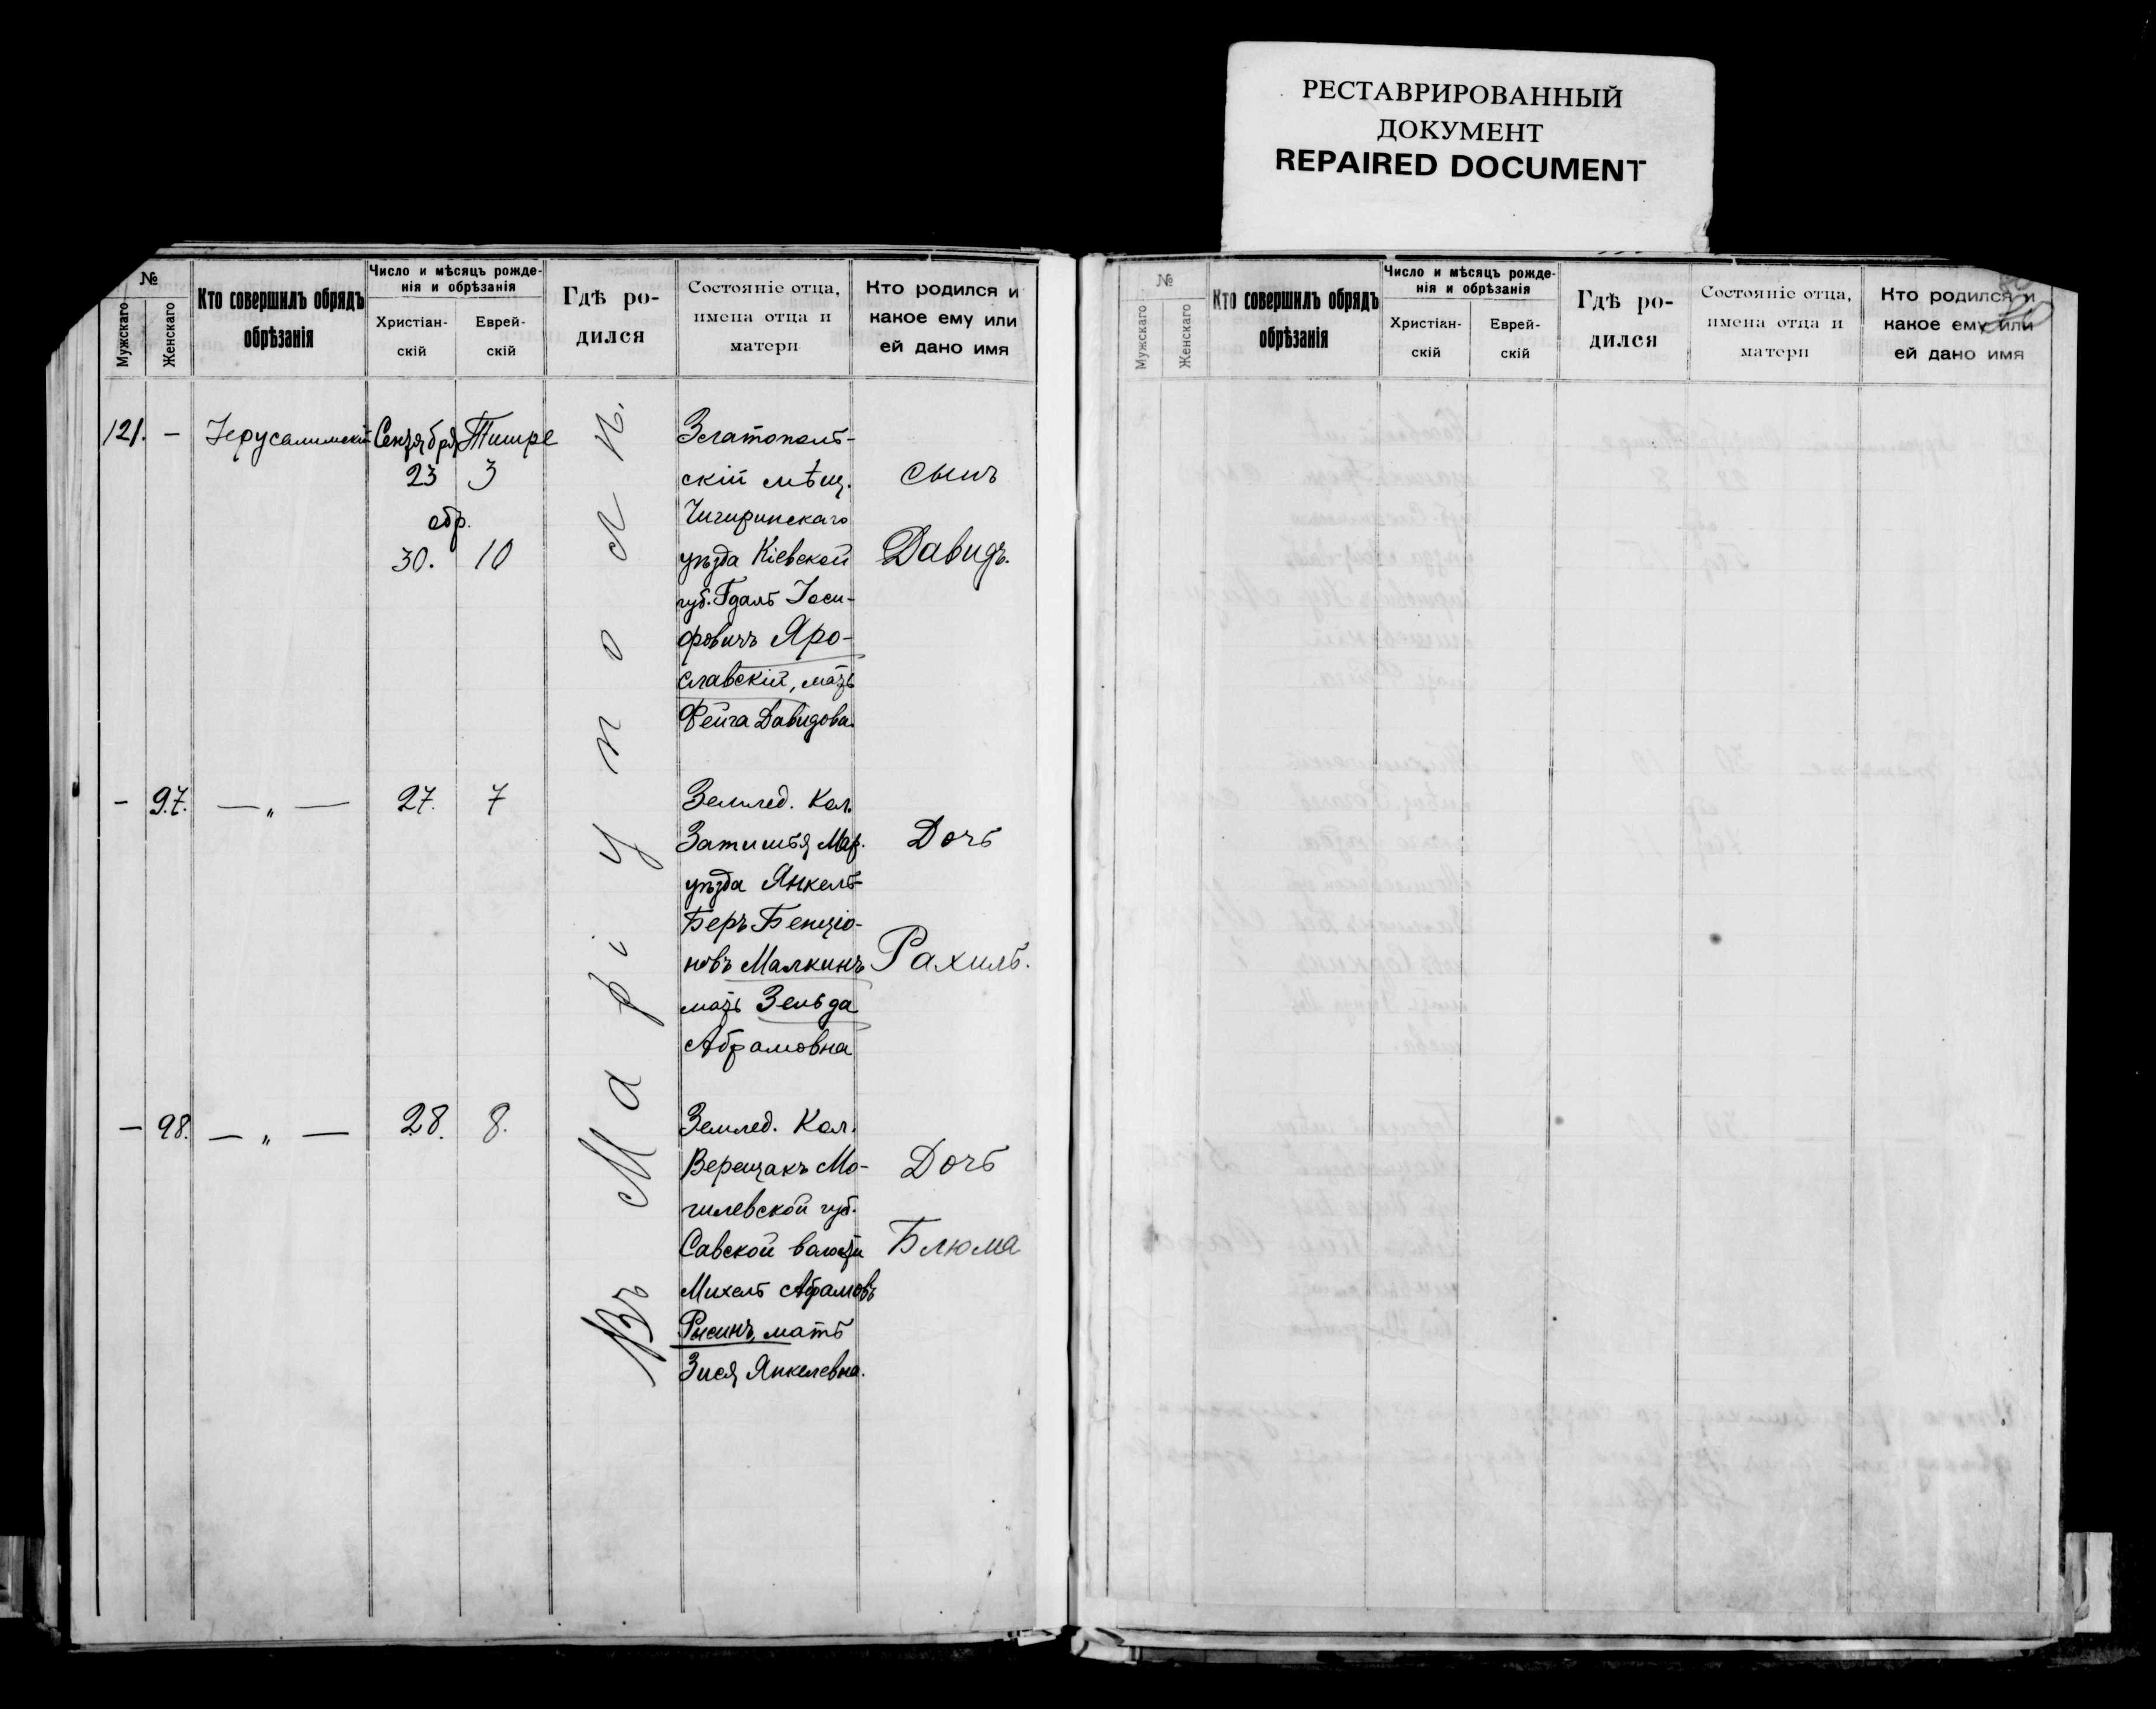 РЕСТАВРИРОВАННЫЙ
ДОКУМЕНТ
REPAIRED DOCUMENT
№
Мужскаго
Женскаго
Кто совершилъ обрядъ
обрѣзанія
Число и мѣсяцъ рожде-
нія и обрѣзанія
Христіан-
скій
Еврей-
скій
Гдѣ ро-
дился
Состояніе отца,
имена отца и
матери
Кто родился и
какое ему или
ей дано имя
121. — Іерусалимскій Сентября Тишре
23 3
обр.
30. 10
Златополь-
скій мѣщ.
Чигиринскаго
уѣзда Кіевской
губ. Гдаль Іоси-
фовичъ Яро-
славскій, мать
Фейга Давидова.
сынъ
Давидъ.
— 97. — „ — 27. 7
Землед. Кол.
Затишья Мар.
уѣзда Янкель-
Беръ Бенціо-
новъ Малкинъ
мать Зельда
Абрамовна
Дочь
Рахиль.
— 98. — „ — 28. 8.
Землед. Кол.
Верещакъ Мо-
гилевской губ.
Савской волости
Михель Абрамовъ
Рысинъ, мать
Зися Янкелевна.
Дочь
Блюма
Въ Маріуполѣ.
№
Мужскаго
Женскаго
Кто совершилъ обрядъ
обрѣзанія
Число и мѣсяцъ рожде-
нія и обрѣзанія
Христіан-
скій
Еврей-
скій
Гдѣ ро-
дился
Состояніе отца,
имена отца и
матери
Кто родился и
какое ему или
ей дано имя